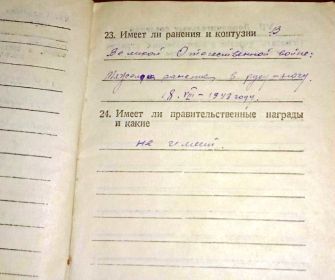 23. Имеет ли ранения и контузии В
Великой Отечественной войне:
ранение в руку - ногу.
18. VIII - 1942 году.
24. Имеет ли правительственные награды
и какие
не имеет.